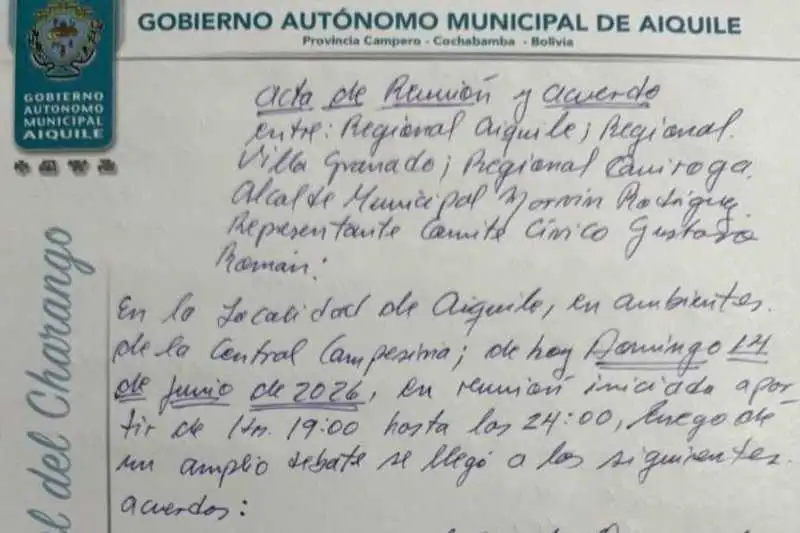 GOBIERNO AUTÓNOMO MUNICIPAL DE AIQUILE
Provincia Campero - Cochabamba - Bolivia
GOBIERNO
AUTÓNOMO
MUNICIPAL
AIQUILE
l del Charango
Acta de Reunión y acuerdo
entre: Regional Aiquile; Regional.
Villa Granado; Regional Quiroga.
Alcalde Municipal Marvin Rodrigue.
Representante Comite Cívico Gustavo
Roman:
En la Localidad de Aiquile, en ambientes.
de la Central Campesina; de hoy Domingo 14
de Junio de 2026, en reunión iniciada apar-
tir de Hrs. 19:00 hasta las 24:00, luego de
un amplio debate se llegó a los siguientes.
acuerdos: